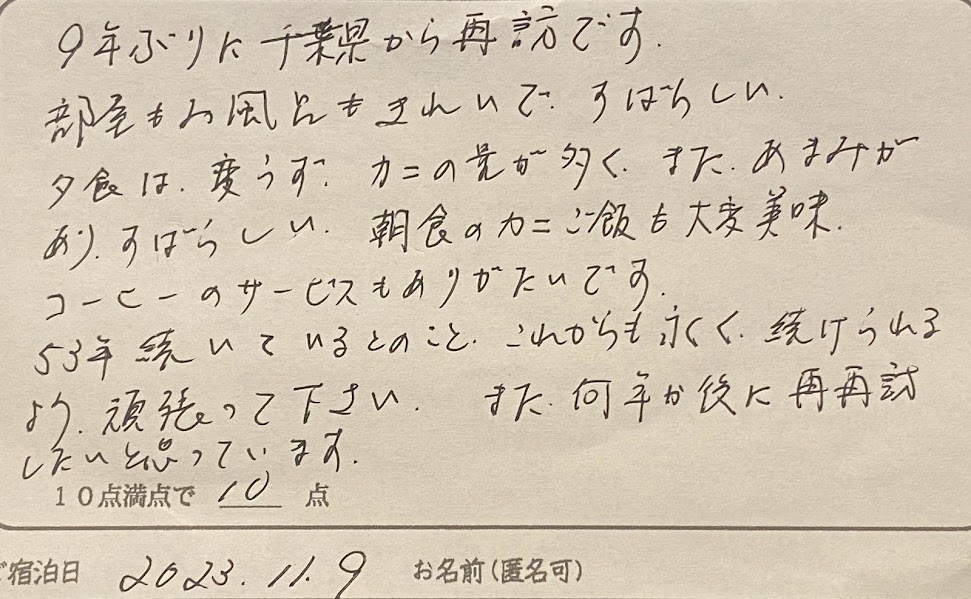 9年ぶりに千葉県から再訪です.
部屋もお風呂もきれいで.すばらしい.
夕食は.変らず.カニの量が多く.また.あまみが
あり.すばらしい.朝食のカニご飯も大変美味.
コーヒーのサービスもありがたいです.
53年続いているとのこと.これからも永くく.続けられる
よう.頑張って下さい. また.何年か後に再再訪
したいと思っています.
10点満点で 10 点
ご宿泊日 2023.11.9 お名前(匿名可)